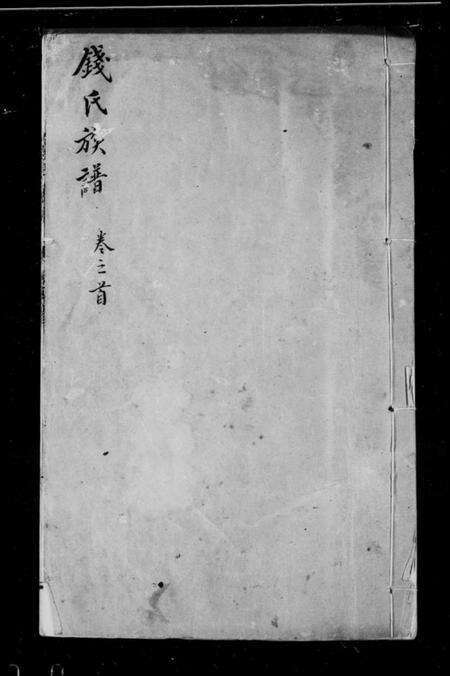 錢氏族譜
卷之首